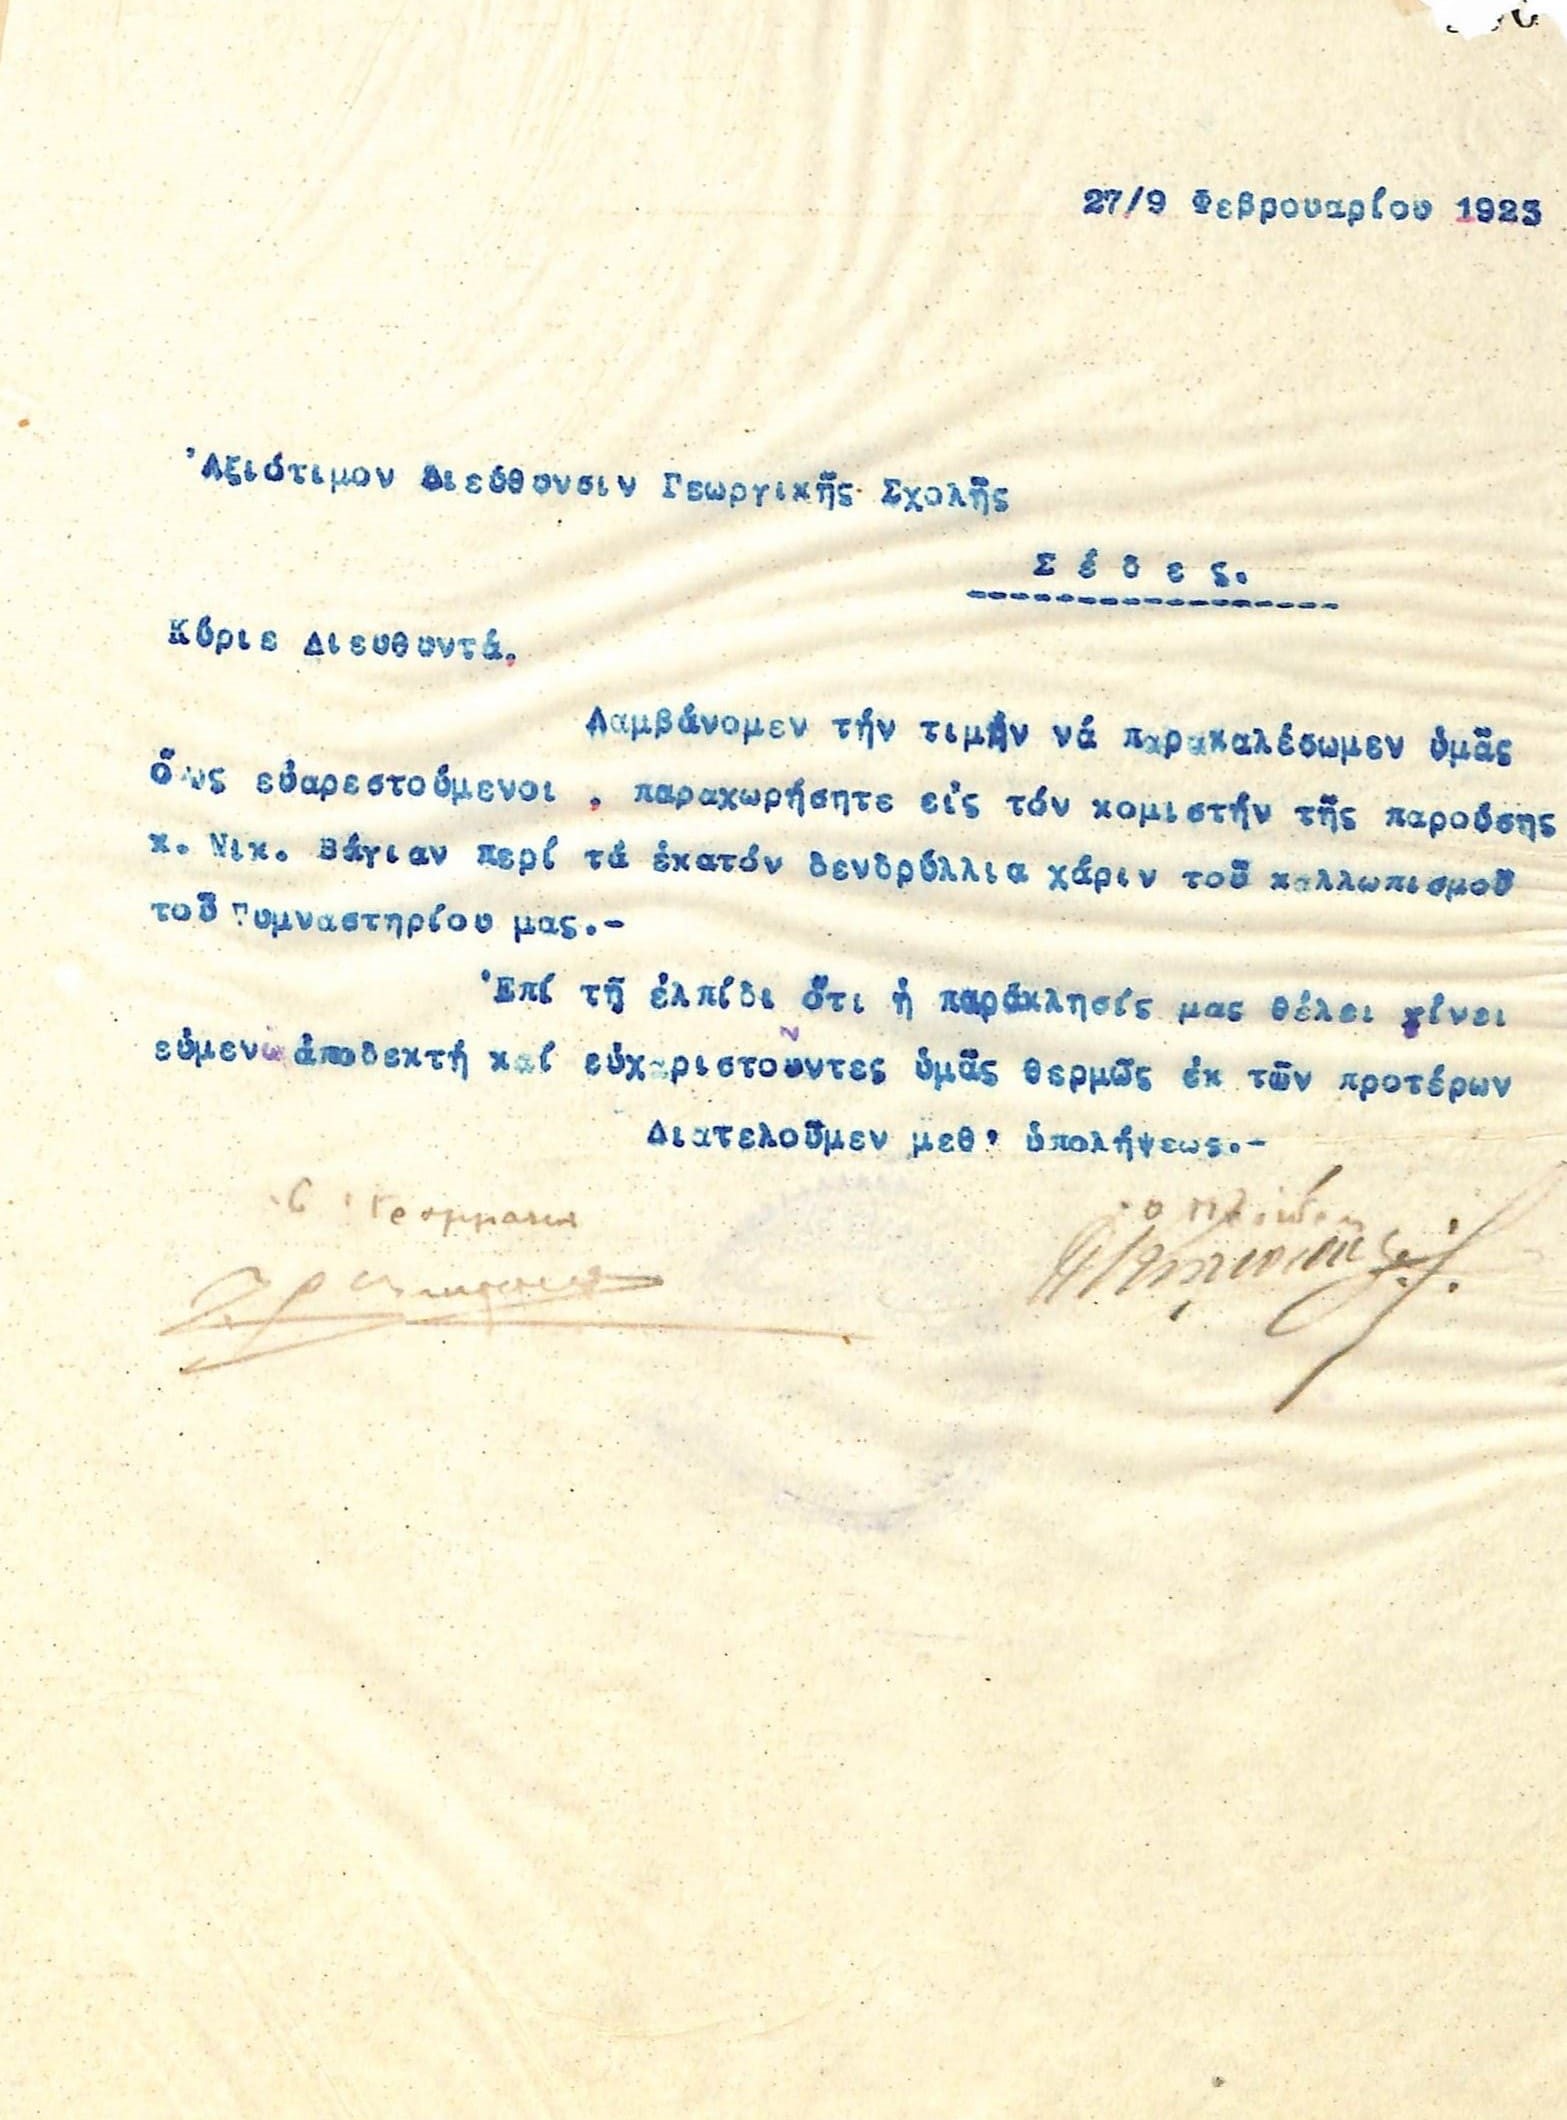 27/9 Φεβρουαρίου 1923
Ἀξιότιμον Διεύθυνσιν Γεωργικῆς Σχολῆς
Σ έ δ ε ς.
Κύριε Διευθυντά.
Λαμβάνομεν τήν τιμήν νά παρακαλέσωμεν ὑμᾶς
ὅπως εὐαρεστούμενοι , παραχωρήσητε εἰς τόν κομιστήν τῆς παρούσης
κ. Νικ. Βάγιαν περί τά ἑκατόν δενδρύλλια χάριν τοῦ καλλωπισμοῦ
τοῦ Γυμναστηρίου μας.-
Ἐπί τῇ ἐλπίδι ὅτι ἡ παράκλησίς μας θέλει γίνει
εὐμενῶ ἀποδεκτή καί εὐχαριστοῦντες ὑμᾶς θερμῶς ἐκ τῶν προτέρων
Διατελοῦμεν μεθ' ὑπολήψεως.-